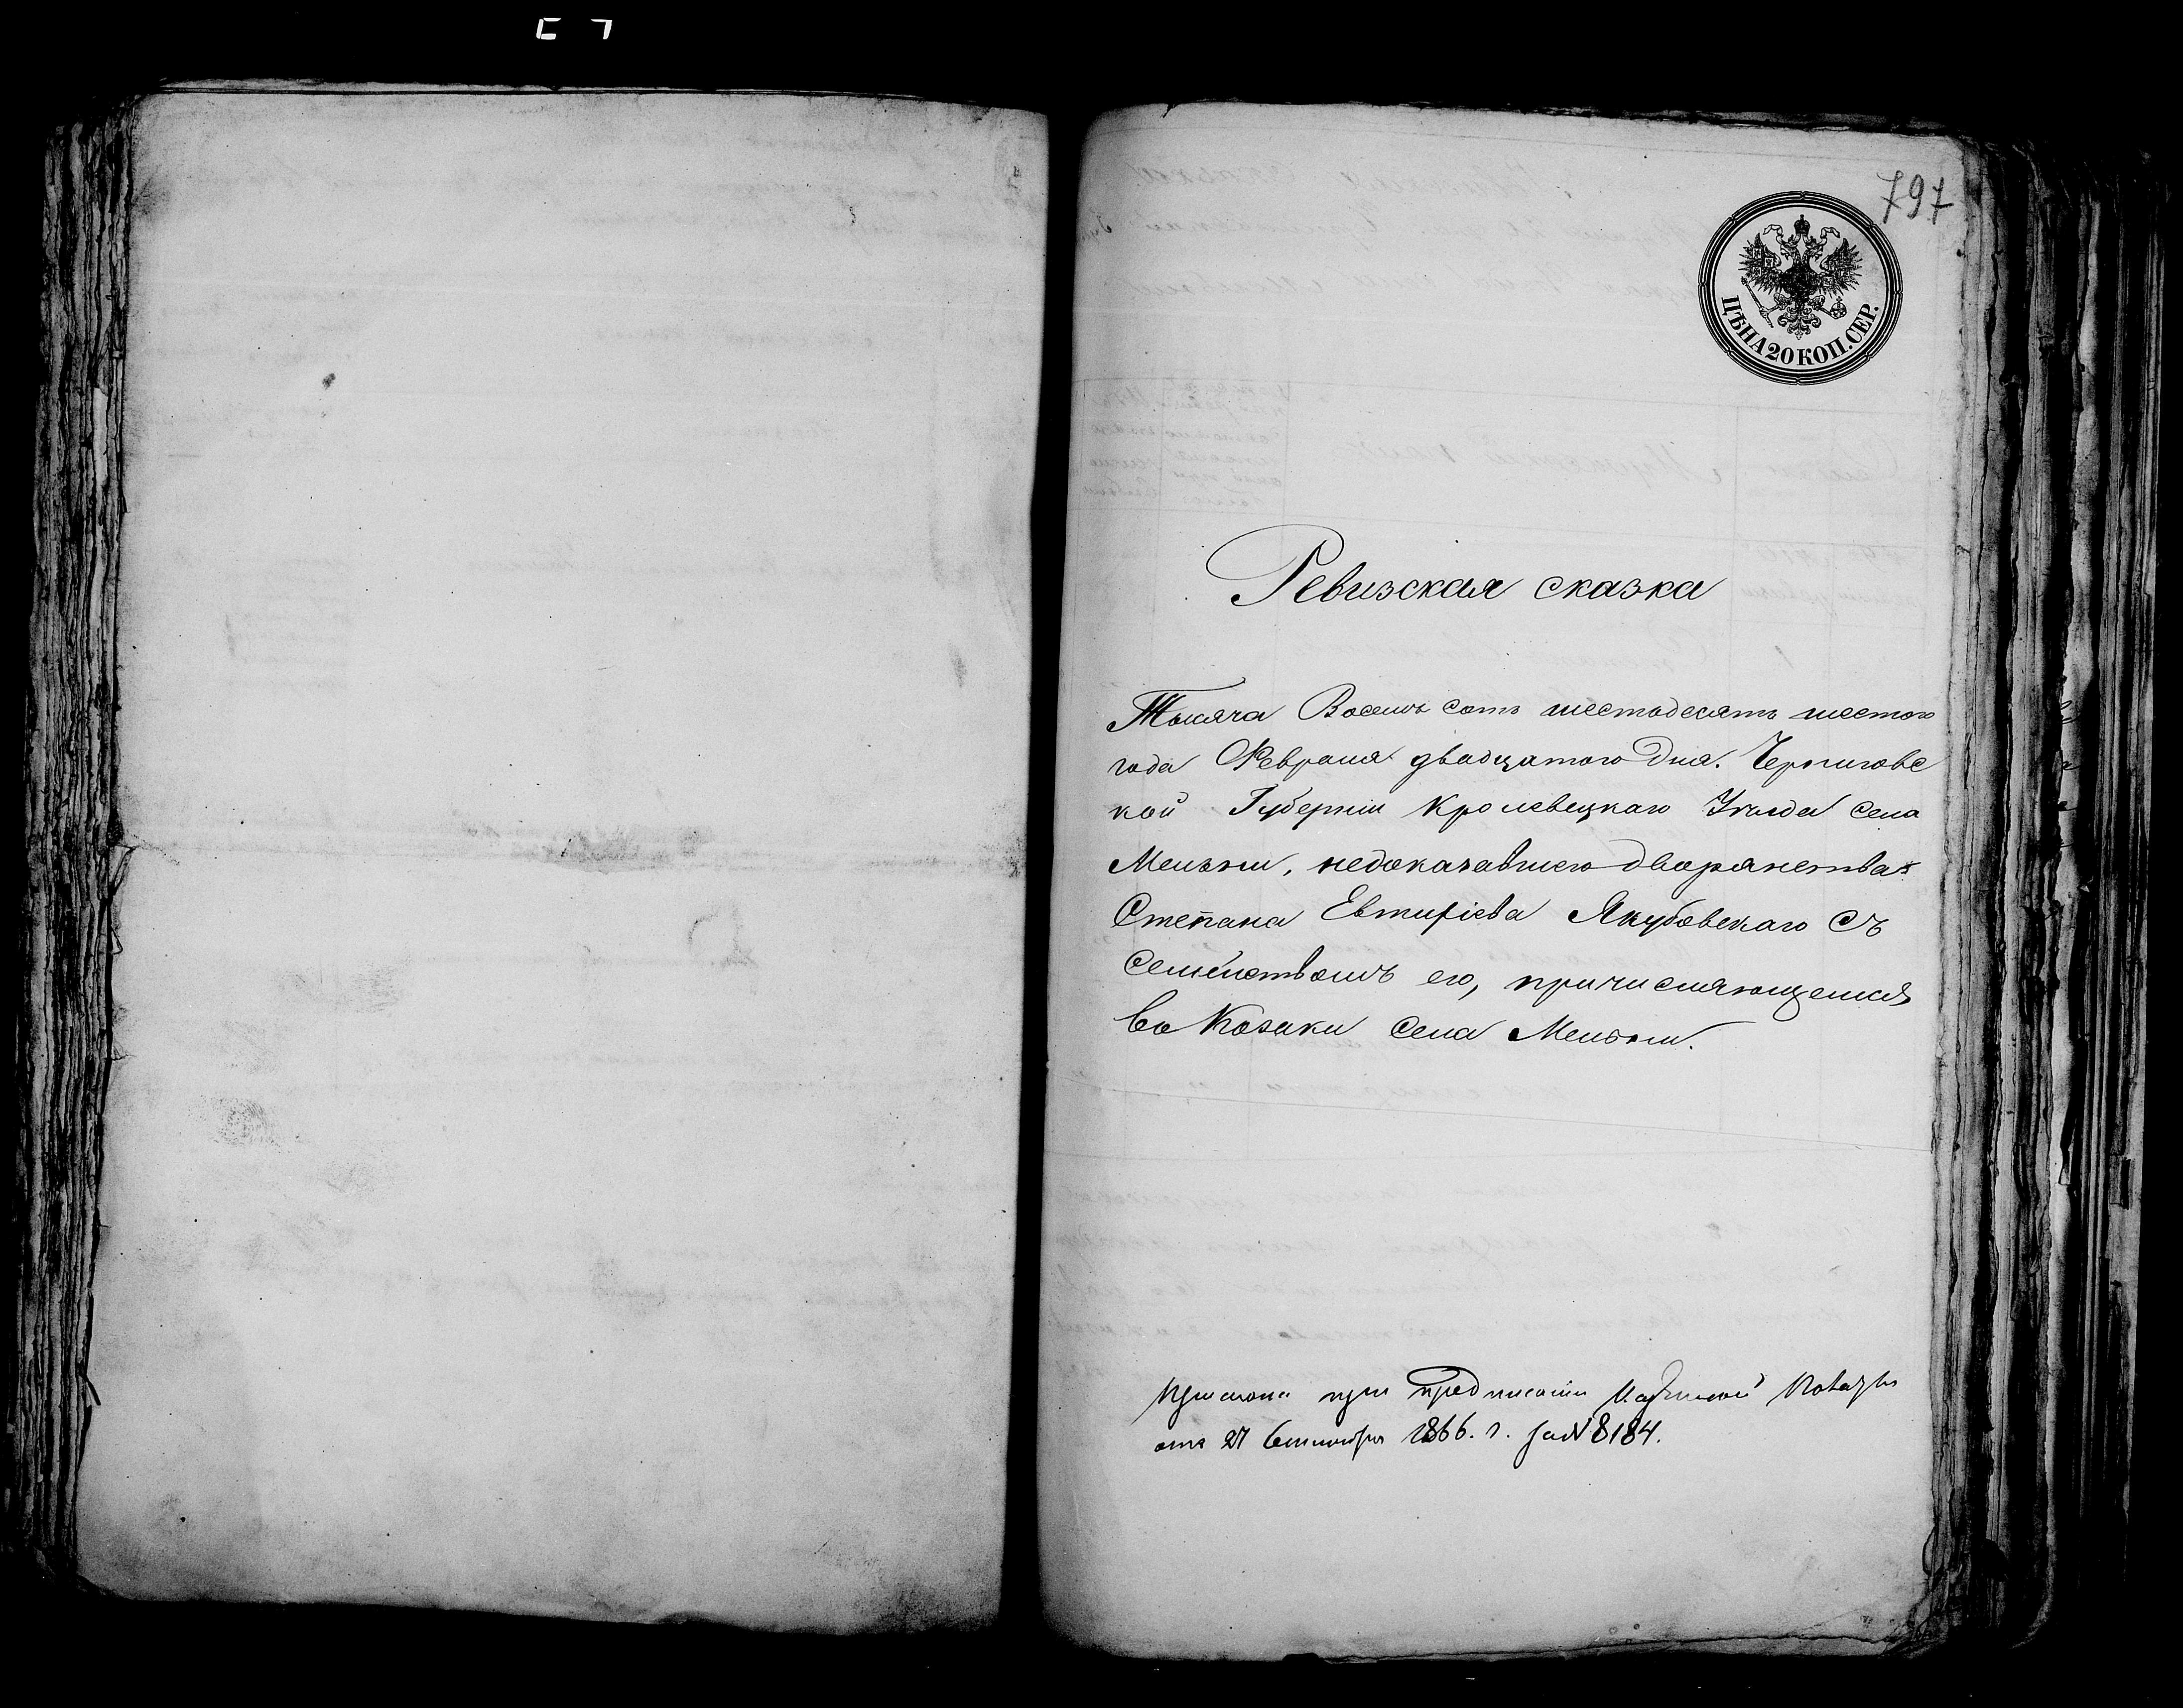 797
ЦѢНА 20 КОП. СЕР.
Ревизская сказка
Тысяча Восемь сотъ шестьдесятъ шестого
года Февраля двадцатого Дня. Черниговс
кой Губерніи Кролевецкаго Уѣзда села
недоказавшего дворянства
Степана Евтифіева Якубовскаго Съ
Семействомъ его, причисляющемся
Во Козаки Села
при предписаніи Казенной Палаты
отъ 27 Сентября 1866. г. за № 8184.